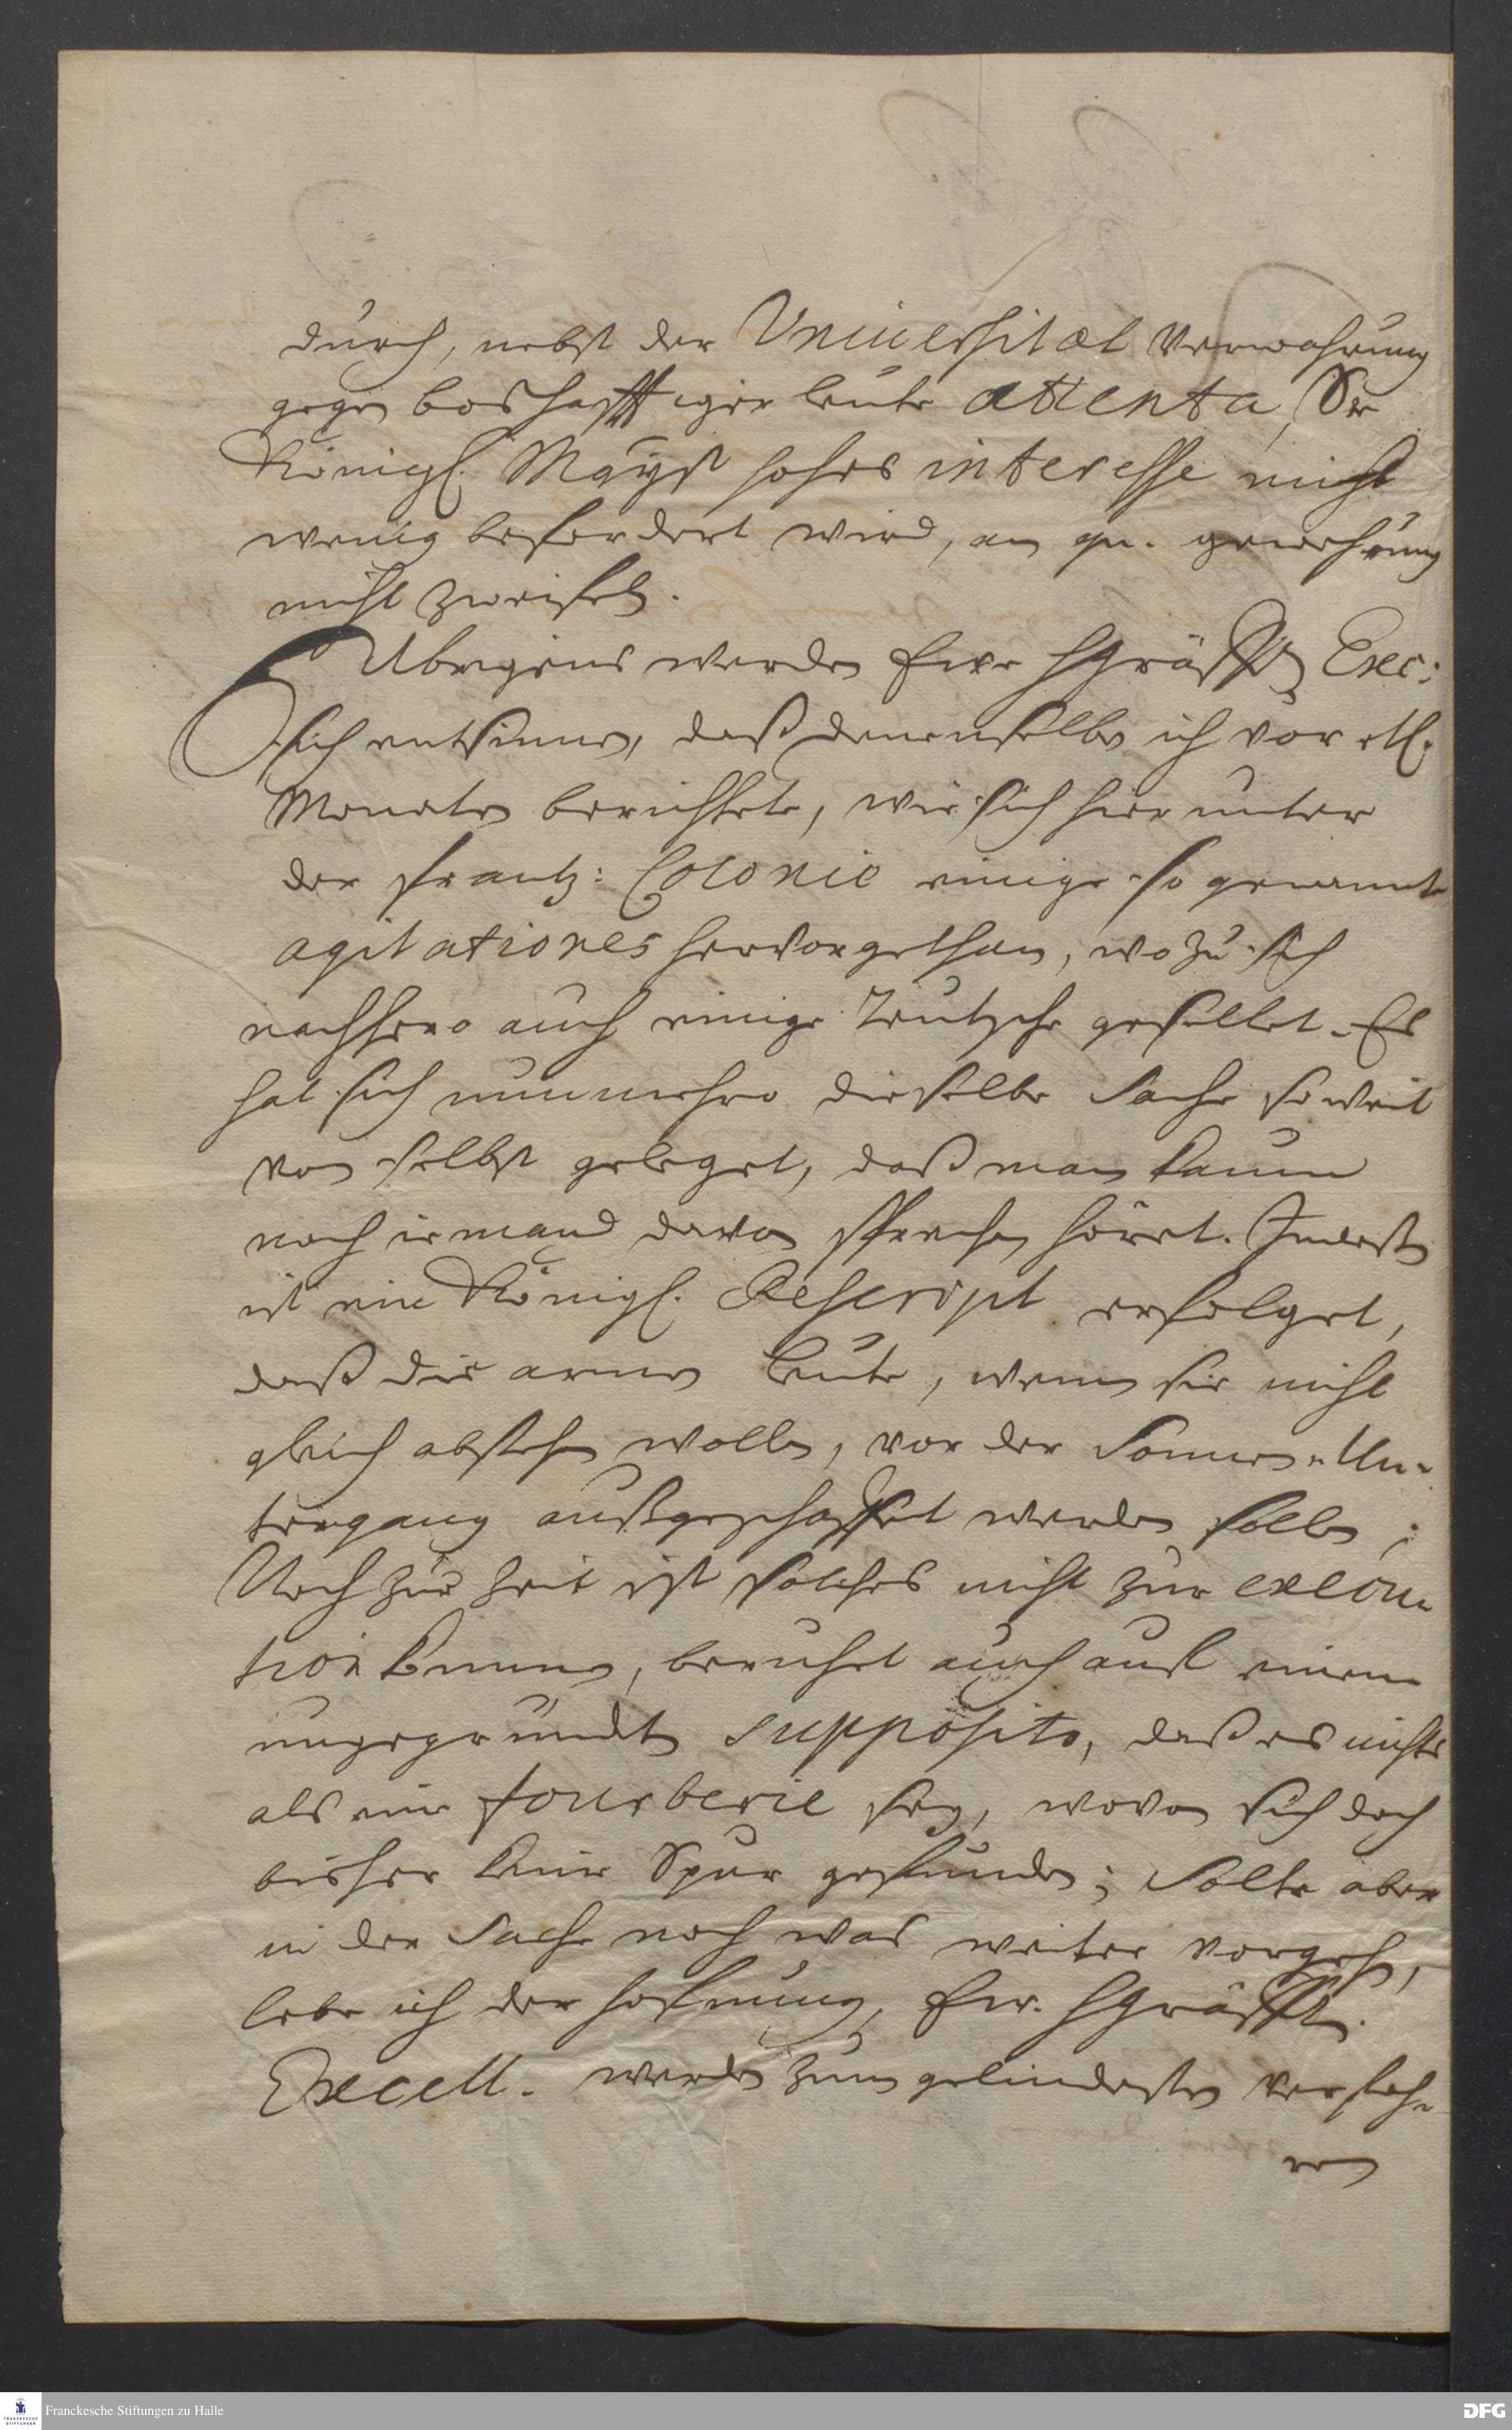 durch, nebst der Universitæt Verwahrung
gegen boßhafftiger leute attenta, Sr
Königl. Mayst hohes interesse nicht
wenig befordert wird, an gn. gewehrung
nicht zweifeln.
Ubrigens werden Ewr HGräffl Exc:
sich entsinnen, daß denenselben ich vor etl.
Monaten berichtete, wie sich hier unter
der frantz: Colonie einige so genannte
agitationes hervorgethan, wozu sich
nachhero auch einige Teutsche gesellet. Es
hat sich nunmehro dieselbe Sache so weit
von selbst geleget, daß man kaum
noch iemand davon sprechen höret. Indeß
ist ein Königl. Rescript erfolget,
daß die armen leute, wenn sie nicht
gleich abstehen wollen, vor der Sonnen-Un-
tergang außgeschaffet werden sollen;
Noch zur Zeit ist solches nicht zur execu-
tion kommen, beruhet auch auf einem
ungegründten supposito, daß es nichts
als eine fourberie sey, wovon sich doch
bisher keine Spur gefunden; Solte aber
in der Sache noch was weiter vorgehen,
lebe ich der hofnung, Ew. HGräffl.
Excell. werden zum gelindesten verfah-
ren
Franckesche Stiftungen zu Halle
DFG